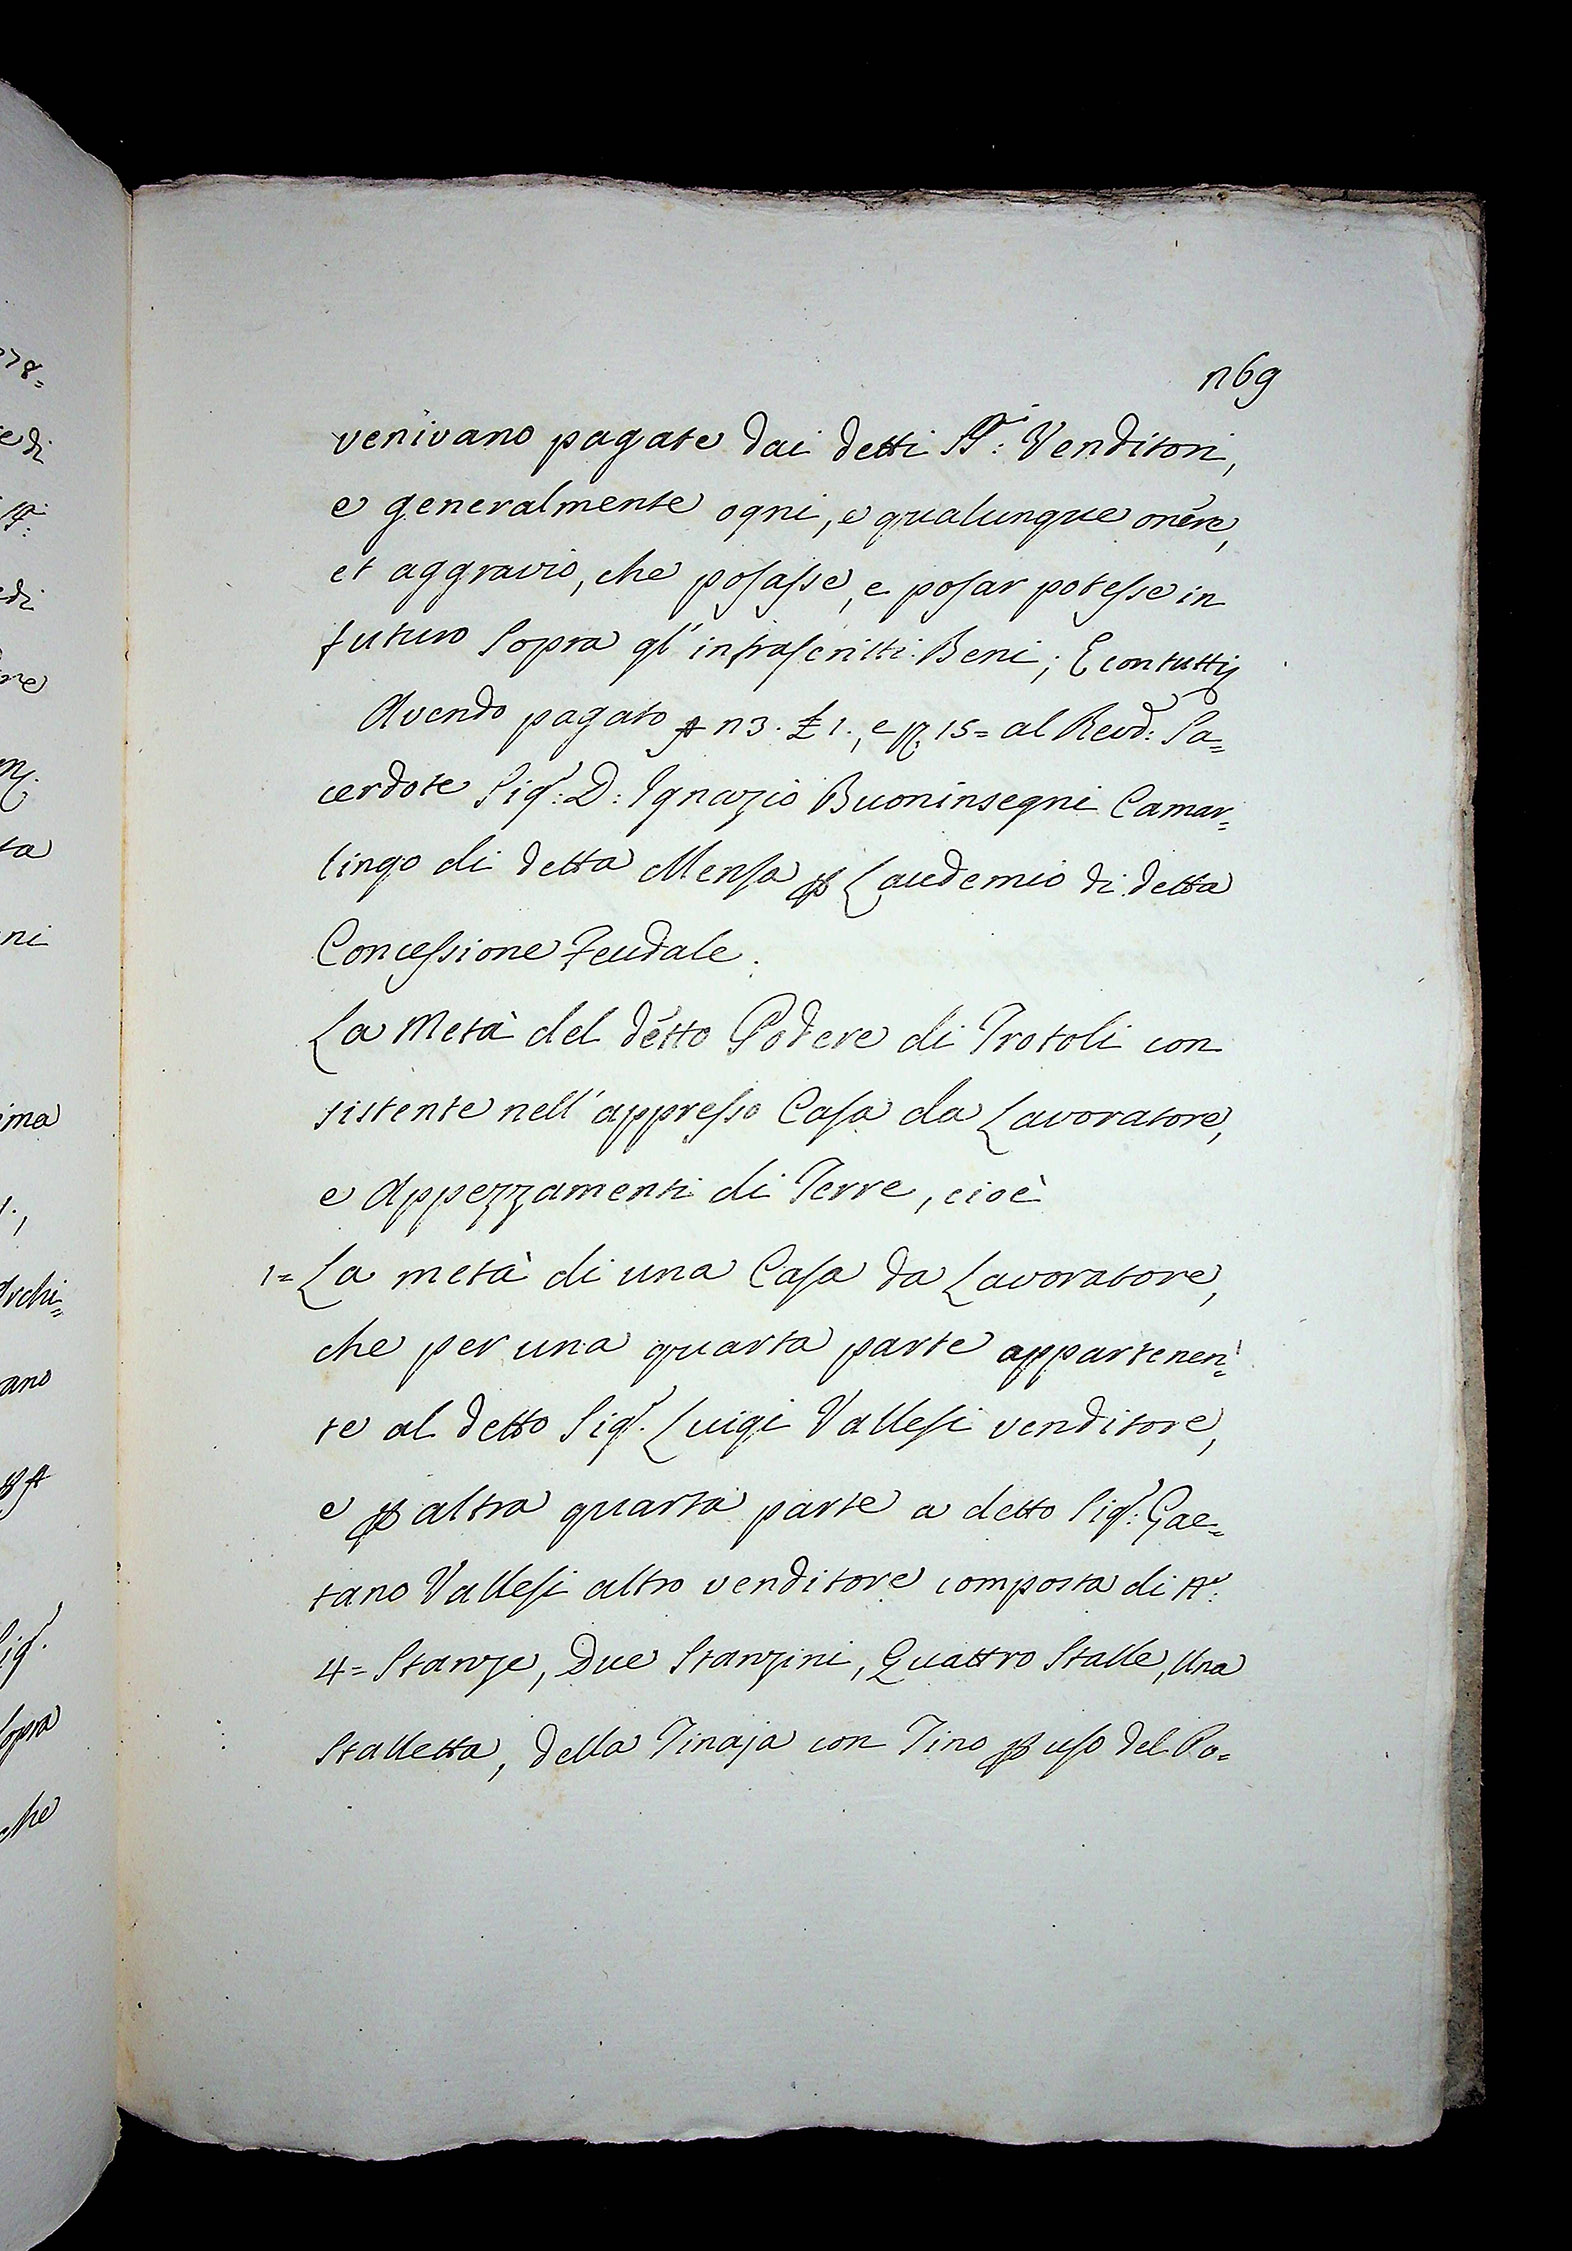 n69
venivano pagate dai detti SS.ri Venditori,
e generalmente ogni, e qualunque onere,
et aggravio, che posasse, e posar potesse in
futuro sopra gl' infrascritti Beni; E con tutti
Avendo pagato n3. £ 1., e 15= al Revd: Sa=
cerdote Sigr: D: Ignazio Buoninsegni Camar=
lingo di detta Mensa p Laudemio di detta
Concessione Feudale.
La Metà del detto Podere di Trotoli con
sistente nell' appresso Casa da Lavoratore,
e Appezzamenti di Terre, cioè
1= La metà di una Casa da Lavoratore,
che per una quarta parte appartenen=
te al detto Sigr. Luigi Vallesi venditore,
e p altra quarta parte a detto Sigr: Gae=
tano Vallesi altro venditore composta di
4= Stanze, Due Stanzini, Quattro Stalle, Una
Stalletta, della Tinaja con Tino p uso del Po=